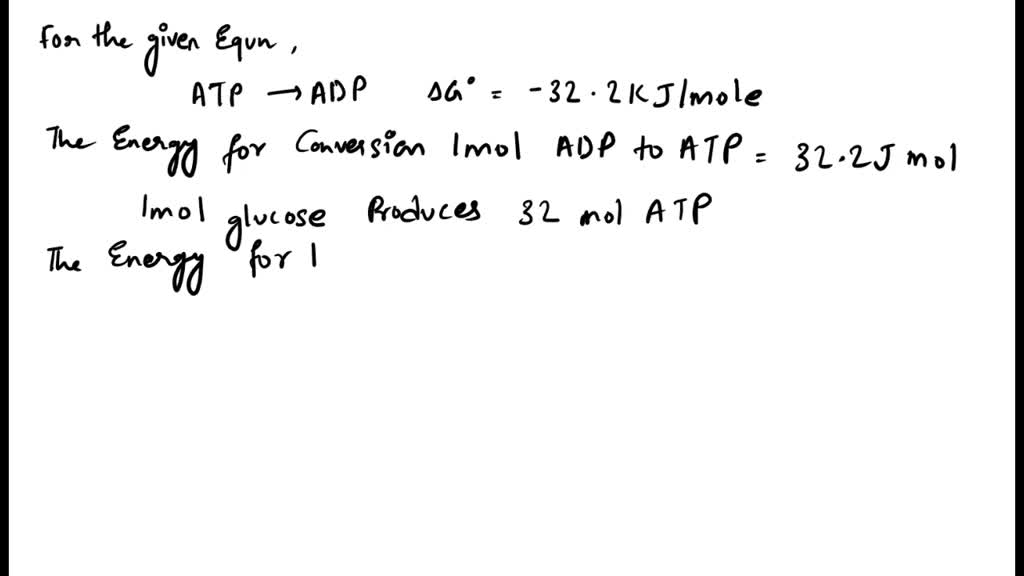 For the given Equn,
ATP → ADP ΔG° = -32.2KJ/mole
The Energy for Conversion 1mol ADP to ATP = 32.2J mol
1mol glucose Produces 32 mol ATP
The Energy for 1